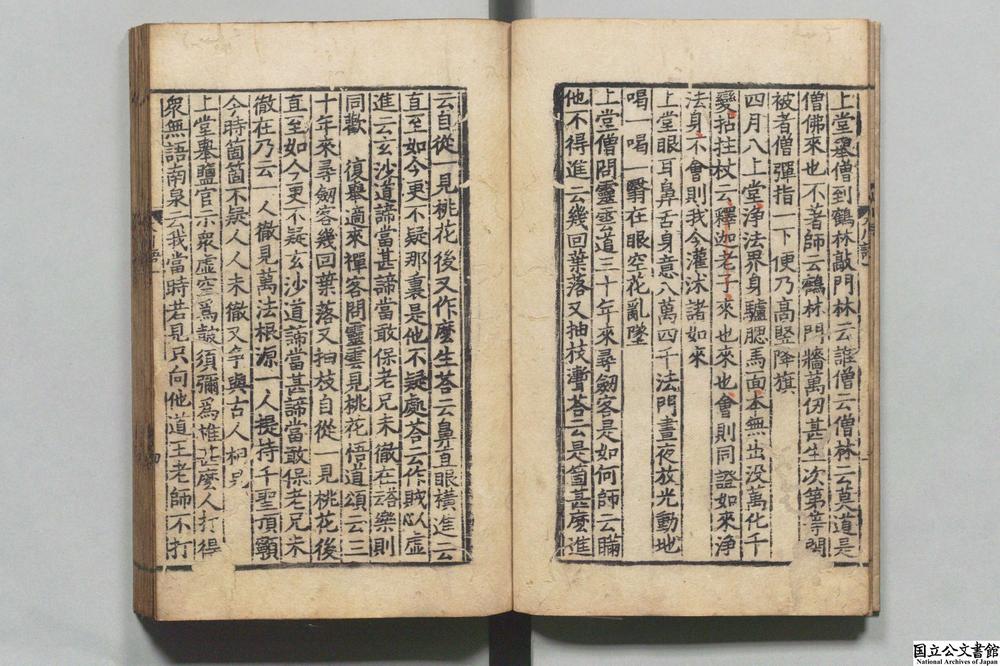 上堂舉僧到鶴林敲門林云誰僧云僧林云莫道是
僧佛來也不著師云鶴林門牆萬仞甚生次第等閑
被者僧彈指一下便乃高竪降旗
四月八上堂淨法界身驢腮馬面本無出没萬化千
變拈拄杖云釋迦老子來也來也會則同證如來淨
法身不會則我今灌沐諸如來
上堂眼耳鼻舌身意八萬四千法門晝夜放光動地
喝一喝一翳在眼空花亂墜
上堂僧問靈雲道三十年來尋劒客是如何師云瞞
他不得進云幾回葉落又抽枝聻荅云是箇甚麽進
云自從一見桃花後又作麽生荅云鼻直眼横進云
直至如今更不疑那裏是他不疑處荅云作賊人心虚
進云玄沙道諦當甚諦當敢保老兄未徹在䛡樂則
同歡　復舉適來禪客問靈雲見桃花悟道頌云三
十年來尋劒客幾回葉落又抽枝自從一見桃花後
直至如今更不疑玄沙道諦當甚諦當敢保老兄未
徹在乃云一人徹見萬法根源一人提持千聖頂顊
今時箇箇不疑人人未徹又争與古人相見
上堂舉鹽官示衆虚空爲鼓須彌爲椎甚麽人打得
衆無語南泉云我當時若見只向他道王老師不打
国立公文書館
National Archives of Japan